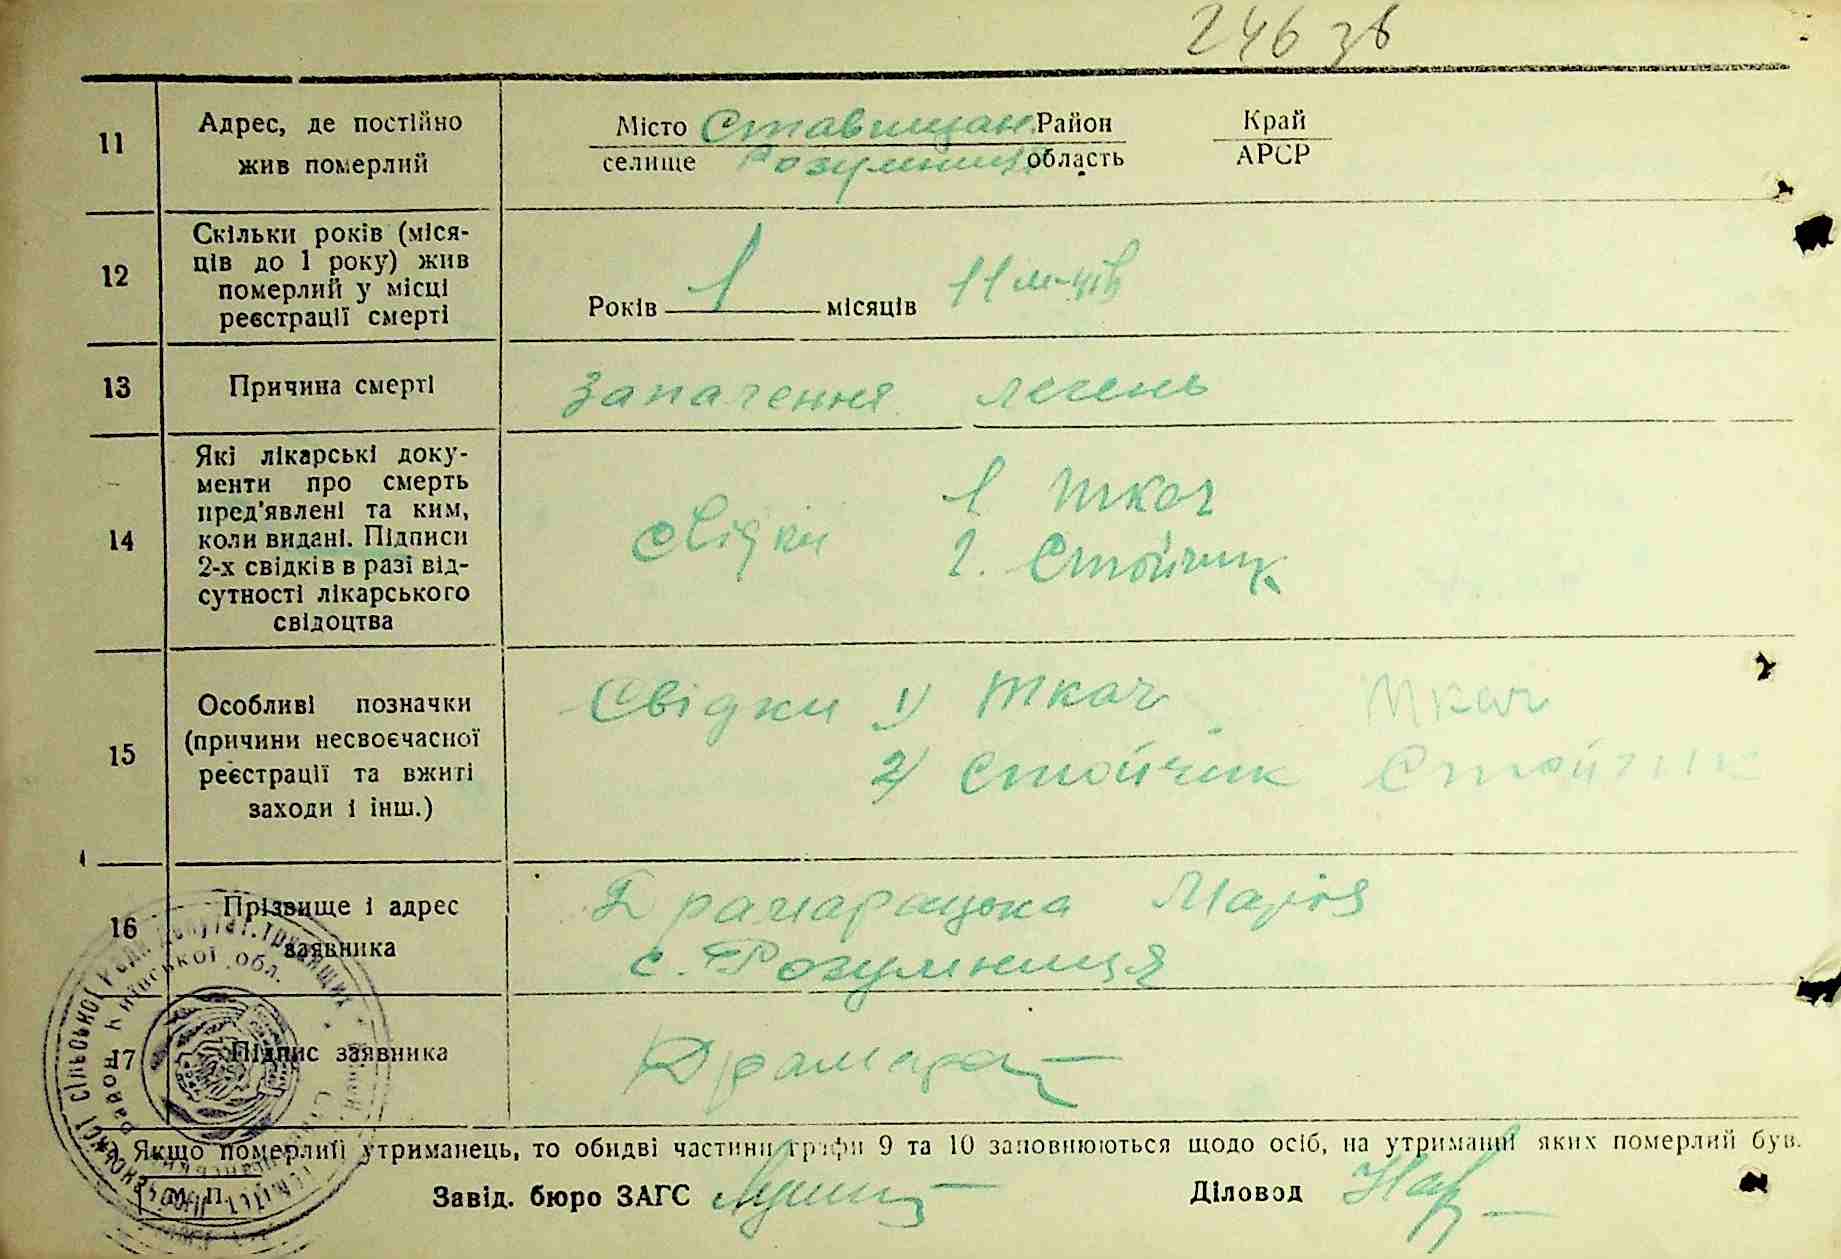 246 зв
11 Адрес, де постійно жив померлий
Місто Ставищан. Район Край
селище Розумниця область АРСР
12 Скільки років (міся-
ців до 1 року) жив
померлий у місці
реєстрації смерті
Років 1 місяців 11 м-ців
13 Причина смерті
Запалення легень
14 Які лікарські доку-
менти про смерть
пред'явлені та ким,
коли видані. Підписи
2-х свідків в разі від-
сутності лікарського
свідоцтва
свідки 1 Ткач
2. Стойчик
15 Особливі позначки
(причини несвоєчасної
реєстрації та вжиті
заходи і інш.)
Свідки 1) Ткач Ткач
2) Стойчик Стойчик
16 Прізвище і адрес
заявника
Марія
с. Розумниця
17 Підпис заявника
Якщо померлий утриманець, то обидві частини графи 9 та 10 заповнюються щодо осіб, на утриманні яких померлий був.
М. П.
Завід. бюро ЗАГС Діловод
сільської Ради депутат. трудящих
район Київської обл.